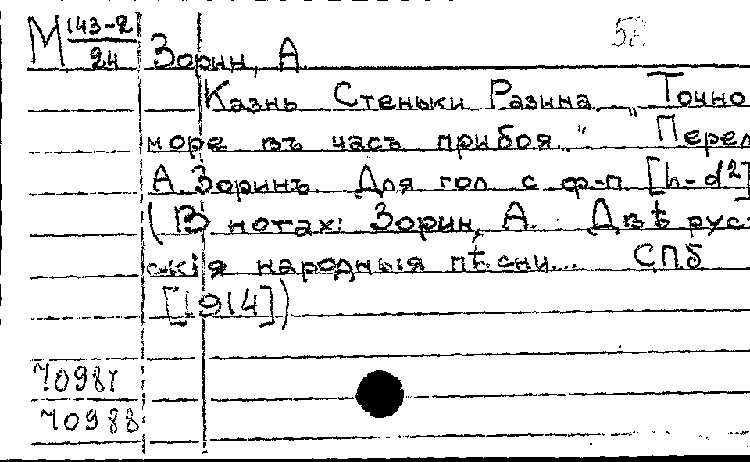 М 143-2
24
58
Зорин, А.
Казнь Стеньки Разина. "Точно
море въ часъ прибоя." Перел
А. Зоринъ. Для гол. с ф-п. [h-d²]
(В нотах: Зорин, А. Двѣ рус-
скія народныя пѣсни... СПб
[1914])
70987
70988